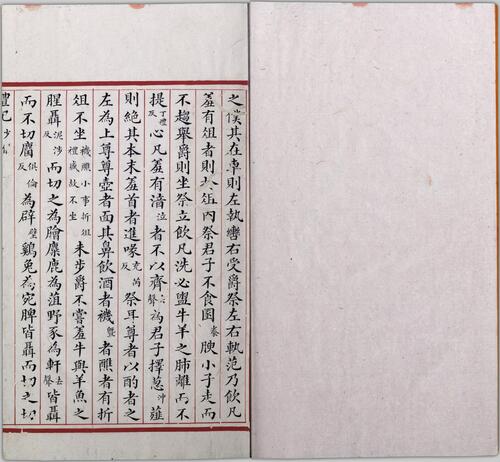 之僕其在車則左執轡右受爵祭左右軌范乃飲凡
羞有俎者則於俎內祭君子不食圂豢腴小子走而
不趨舉爵則坐祭立飲凡洗必盥牛羊之肺離而不
提丁禮反心凡羞有湆泣者不以齊去聲為君子擇葱沖薤
則絕其本末羞首者進喙充芮反祭耳尊者以酌者之
左為上尊尊壺者面其鼻飲酒者禨曁者醮者有折
俎不坐禨醮小事折俎禮盛故不坐未步爵不嘗羞牛與羊魚之
腥聶泥涉反而切之為膾麋鹿為菹野豕為軒去聲皆聶
而不切麕俱倫反為辟壁雞兔為宛脾皆聶而切之切
禮記少儀